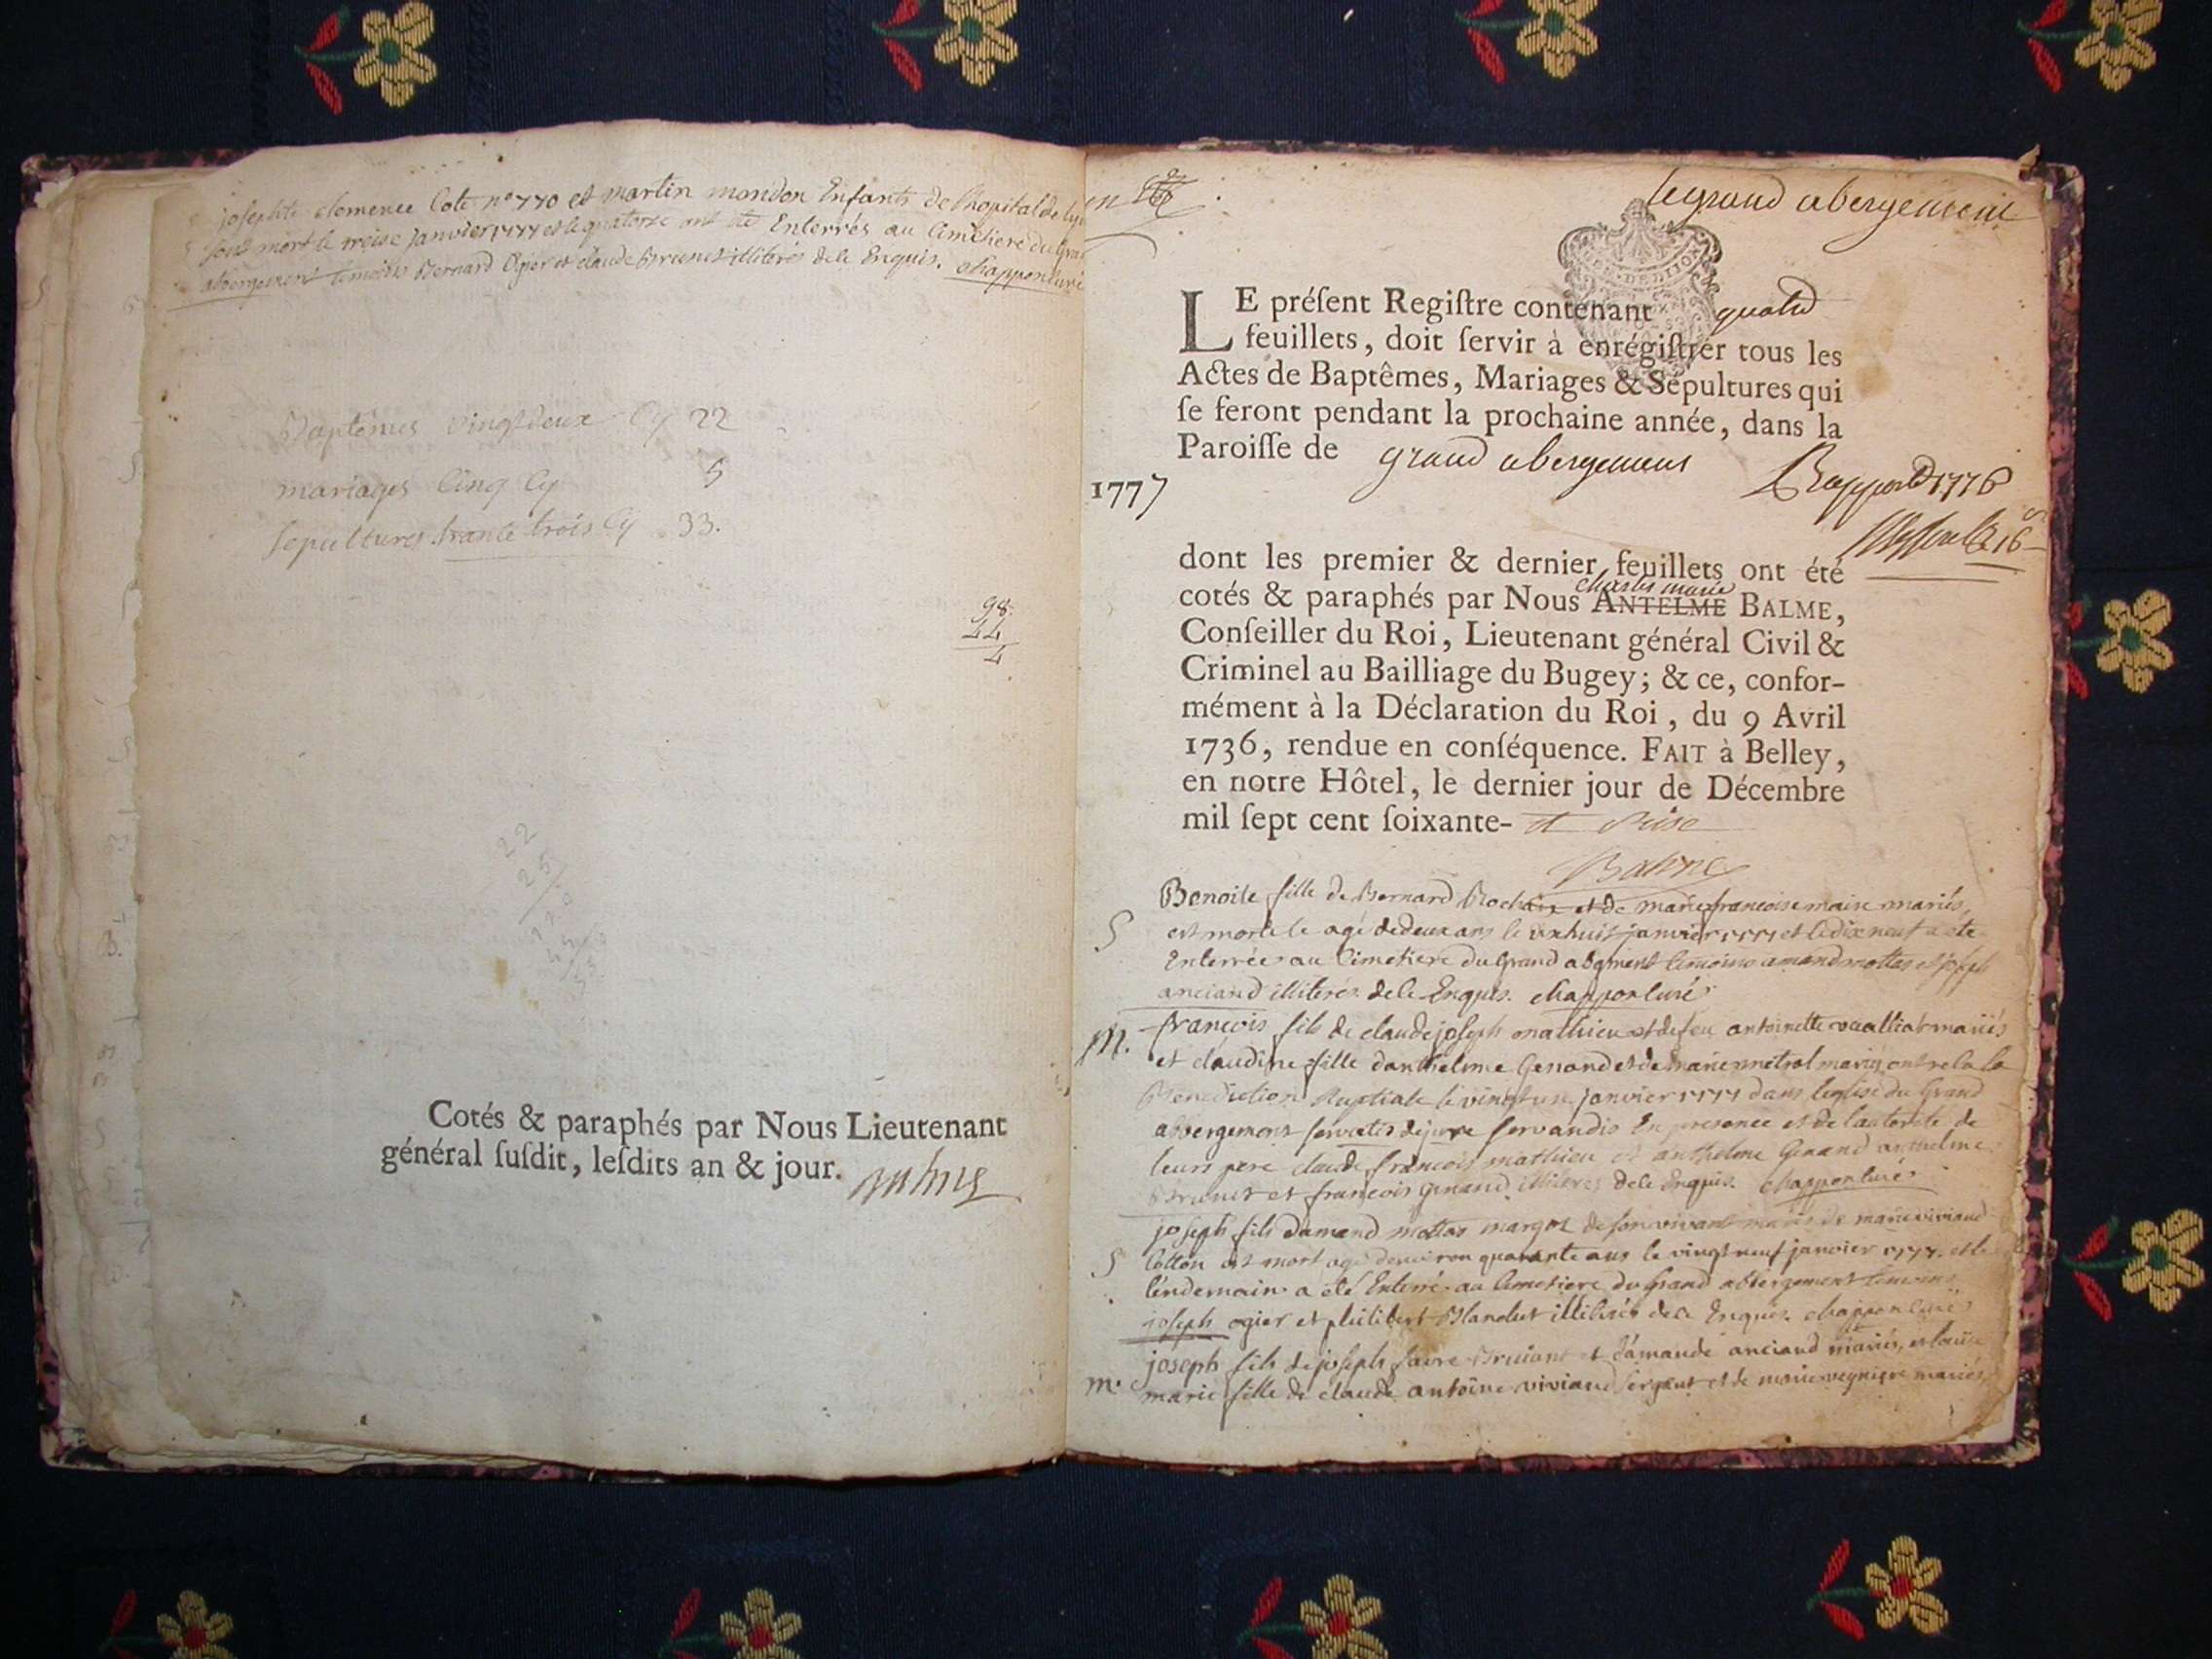 josephte clemence Cote n° 770 et martin mondon Enfants de lhopital de
sont mort le treise janvier 1777 et le quatorse ont été Enterrés au Cimetiere du
abbergement temoins Bernard Ogier et claude Brunet illiterés de ce Enquis. chappon curé
Baptêmes vingtdeux Cy 22
mariages Cinq Cy 5
Sepultures trante trois Cy 33.
98
44
4
22
25
Cotés & paraphés par Nous Lieutenant
général ſuſdit, leſdits an & jour.
Balme
le grand abergement
LE préſent Regiſtre contenant quatre
feuillets, doit ſervir à enrégiſtrer tous les
Actes de Baptêmes, Mariages & Sépultures qui
ſe feront pendant la prochaine année, dans la
Paroiſſe de grand abergement
1777
dont les premier & dernier feuillets ont été
charles marie
cotés & paraphés par Nous ANTELME BALME,
Conſeiller du Roi, Lieutenant général Civil &
Criminel au Bailliage du Bugey; & ce, confor-
mément à la Déclaration du Roi, du 9 Avril
1736, rendue en conſéquence. FAIT à Belley,
en notre Hôtel, le dernier jour de Décembre
mil ſept cent ſoixante- et seise
Balme
Benoite fille de Bernard Rochaix et de marie francoise maire mariés,
S est morte le agé de deux ans le dixhuit janvier 1777 et le dix neuf a eté
Enterrée au Cimetiere du Grand abgment temoins amand mottas et joseph
anciand illiterés de ce Enquis. chappon curé
M. francois fils de claude joseph mathieu et de feu antoinette vualliat mariés
et claudine fille danthelme Genand et de marie metral mariés ont recu la
Benediction Nuptiale le vingt un janvier 1777 dans leglise du Grand
abbergement servatis de jure servandis En presence et de lautorité de
leurs pere claude francois mathieu et anthelme Genand anthelme
Brunet et francois Genand illiteres de ce Enquis. chappon curé
joseph fils damand mottas margot de son vivant mariés de marie viviand
S cotton est mort agé denviron quarante ans le vingt neuf janvier 1777. et le
lendemain a eté Enterré au Cimetiere du Grand abbergement temoins
joseph ogier et philibert Blandet illiterés de ce Enquis. chappon curé
joseph fils de joseph favre Bruiant et damande anciand mariés, et
m. marie fille de claude antoine viviand sergent et de marie mariés